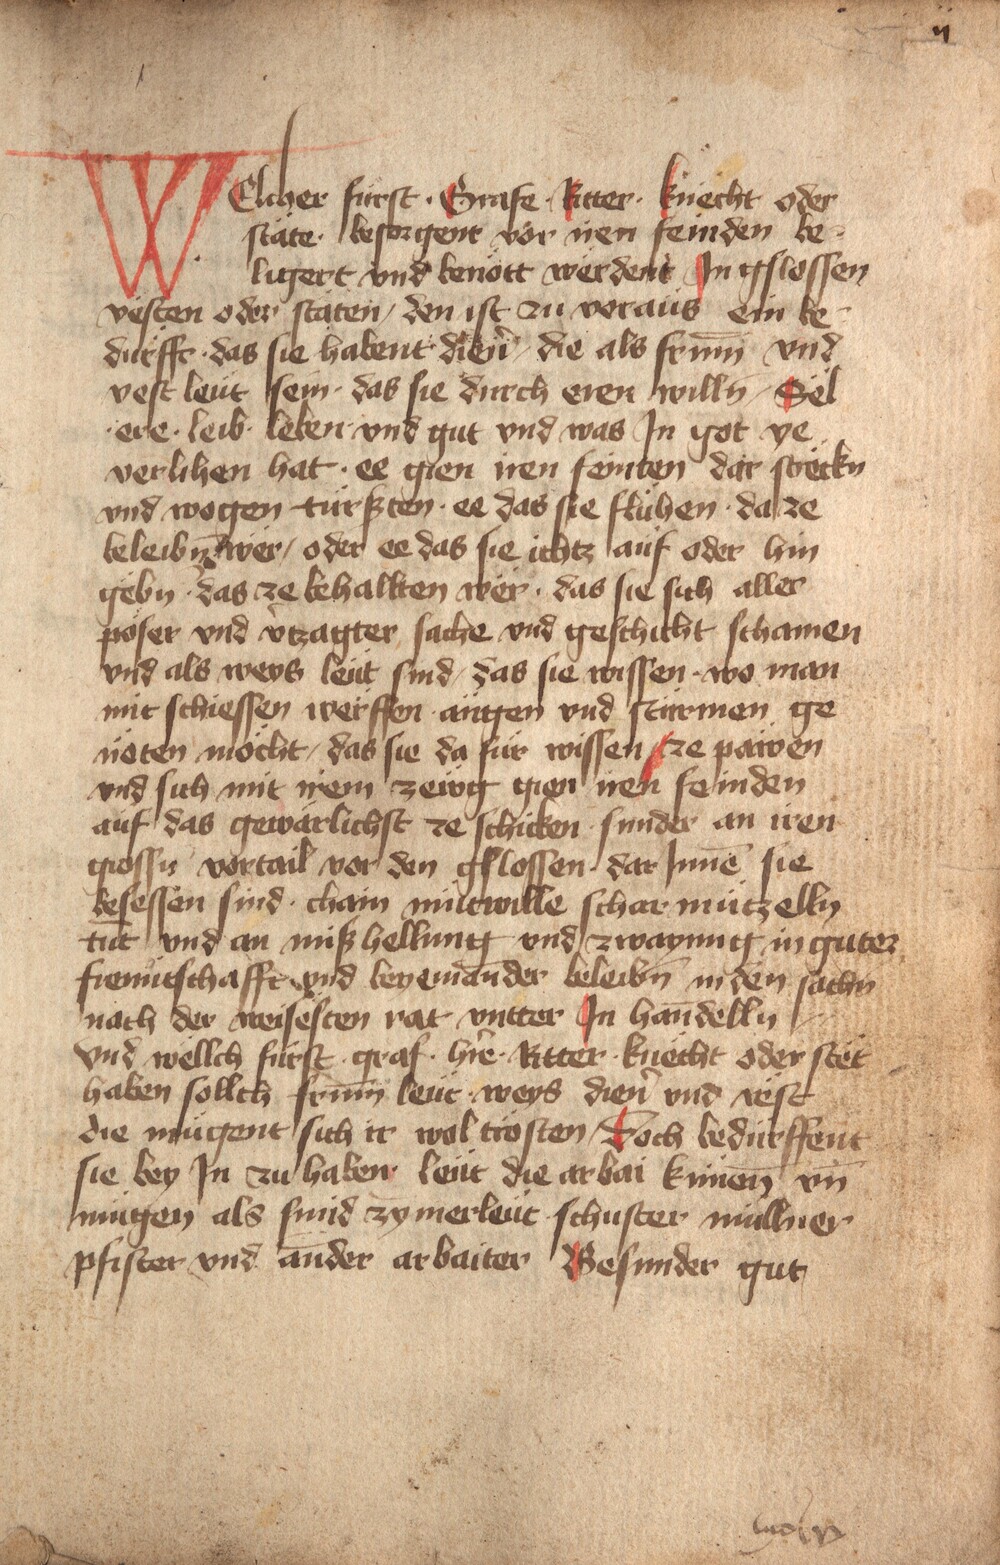 ij
WElcher fürst · Grafe · Ritter · knecht oder
stäte · besorgent vor iren feinden be-
ligert vnd benött werdent In gslossen
vesten oder stäten / den ist zu voraus ein be-
dürfft · das sie habent dienˀ / die als frūm vnd
vest leüt sein · das sie durch eren willn / Sel
· ere · leib · leben · vnd gut vnd was In got ye
verlihen hat · ee gien iren feinten dar streckn
vnd wogen türsten · ee das sie fluhen · da ze
beleibn wer / oder ee das sie ichtz auf oder hin
gebn · das ze behallten wer · das sie sich aller
pöser vnd v̾tzagter sache vnd geschicht schamen
vnd als weys leüt sind / das sie wissen · wo man
mit schiessen werffen angen vnd stürmen ge
nöten möcht / das sie da für wissen ze pawen
vnd sich mit irem zewg gien iren feinden
auf das gewärlichst ze schicken · sunder an iren
grossn vortail vor den gslossen · dar Inne sie
besessen sind · chain mutwille scharmützelln
tut vnd an mißhellung vnd zwayung in guter
freuntschafft vnd beyeinander beleibn in den sachn
nach der weisesten rat vntter In handelln /
Vnd wellch fürst · graf · hˀre · Ritter · knecht oder stet
haben sollch frūm leüt · weys dienˀ vnd vest
die mügent sich ir wol trösten / Doch bedürffent
sie bey In zu haben leüt die arbai künen vn̄
mügen als smid zymerleüt schuster müllner
pfister vnd ander arbaiter Besunder gut